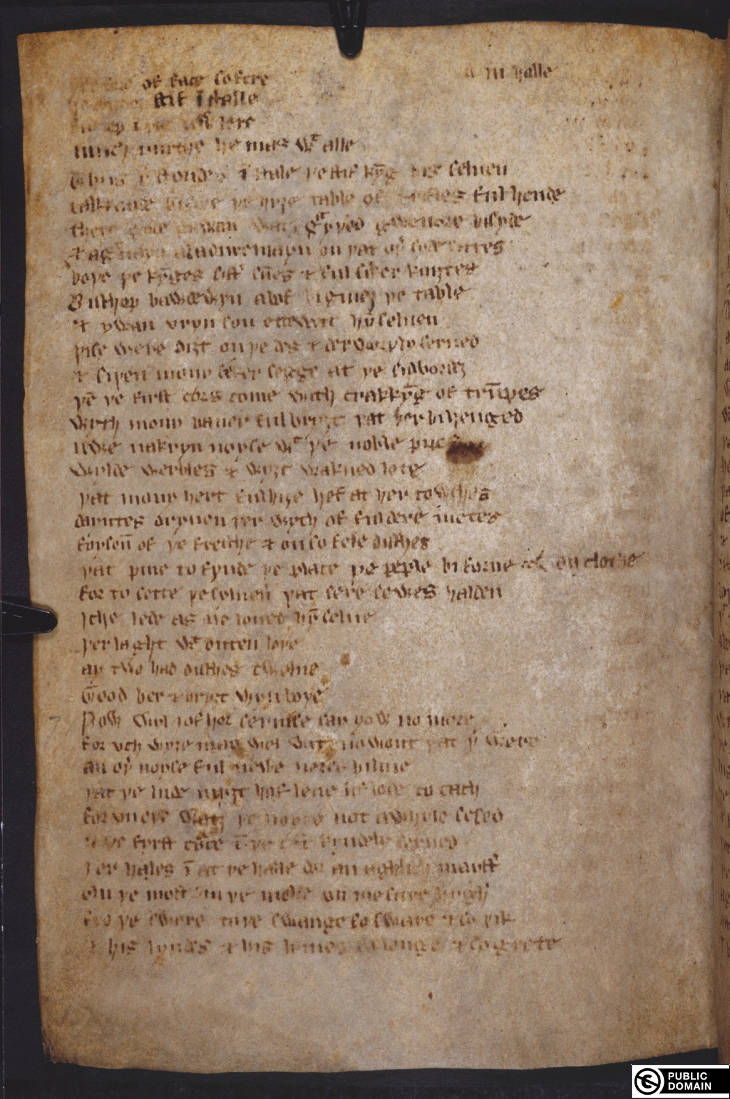 of face so fere
stif ī stalle
ȝep ī þat nw ȝere
much mirthe he mas wͭ alle
Thus þ stondes ī stale þe stif kyg his seluen
talkkande bifore þe hyȝe table of trifles ful hende
there gode gawan watz gͬyþed gwenore bisyde
& agrauayn aladuremayn on þat oþ syde sittes
boþe þe kyges sistˀ sunes & ful siker kniȝtes
Bischop bawdewyn abof bigineȝ þe table
& ywan vryn son ette wit hȳ seluen
þise were diȝt on þe des & derworþly serued
& siþen mony siker segge at þe sidbordeȝ
þē þe first cors come with crakkyg of trūpes
wyth mony baner ful bryȝt þat þer bi henged
nwe nakryn noyse wͭ þe noble pipes
wylde werbles & wyȝt wakned lote
þat mony hert ful hiȝe hef at her towches
dayntes dryuen þer wyth of ful dere metes
foysoū of þe fresche & on so fele disches
þat pine to fynde þe place þe peple bi forne
for to sette þe selueren þat sere sewes halden on clothe
Iche lede as he loued hȳ selue
þer laght wͭ outen loþe
ay two had disches twelue
Good ber & bryȝt wyn boþe
Now wyl I of hor seruise say yow no more
for vch wyȝe may wel wit no wont þat þ were
an oþ noyse ful newe neȝed biliue
þat þe lude myȝt haf leue liflode to cach
for vneþe watȝ þe noyce not a whyle sesed
& þe fyrst cource ī þe court kyndely serued
þer hales ī at þe halle dor an aghlich maystˀ
on þe most on þe molde on mesure hyghe
fro þe swyre to þe swange so sware & so þik
& his lyndes & his lymes so longe & so grete
PUBLIC DOMAIN